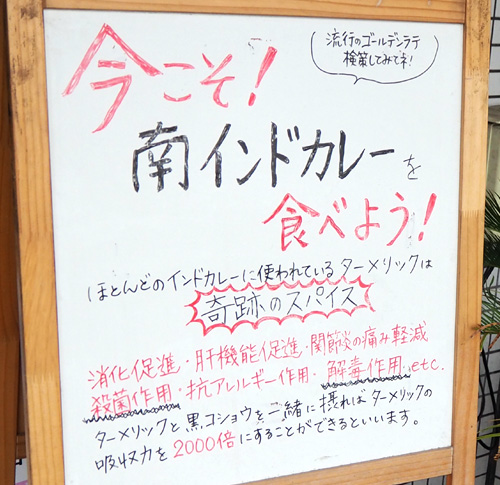 今こそ!
流行のゴールデンラテ
検策してみてネ!
南インドカレーを
食べよう!
ほとんどのインドカレーに使われているターメリックは
奇跡のスパイス
消化促進・肝機能促進・関節炎の痛み軽減
殺菌作用・抗アレルギー作用・解毒作用.etc.
ターメリックと黒コショウを一緒に摂ればターメリックの
吸収力を2000倍にすることができるといいます。